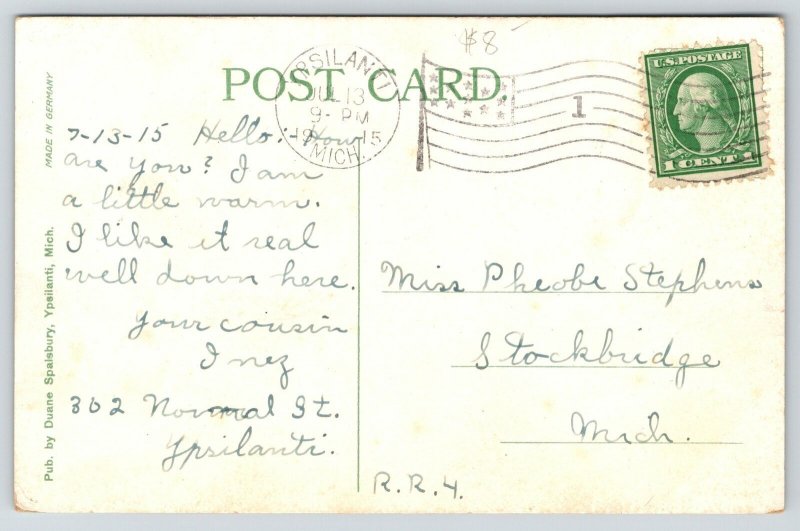 #8
POST CARD
YPSILANTI
JUL 13
9 - PM
1915
MICH.
1
U.S. POSTAGE
1 CENT 1
MADE IN GERMANY
Pub. by Duane Spalsbury, Ypsilanti, Mich.
7-13-15 Hello:- How
are you? I am
a little warm.
I like it real
well down here.
Your cousin
Inez
302 Normal St.
Ypsilanti.
Miss Pheobe Stephens
Stockbridge
Mich.
R.R.4.